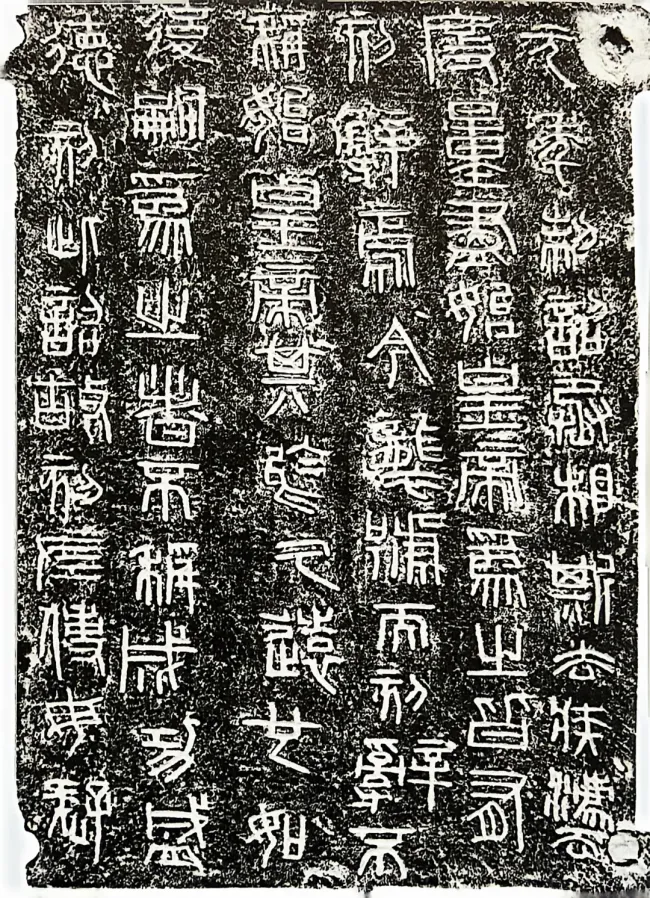 元年制詔丞相斯去疾灋
度量盡始皇帝爲之皆有
刻辭焉今襲號而刻辭不
稱始皇帝其於久遠也如
後嗣爲之者不稱成功盛
德刻此詔故刻左使毋疑